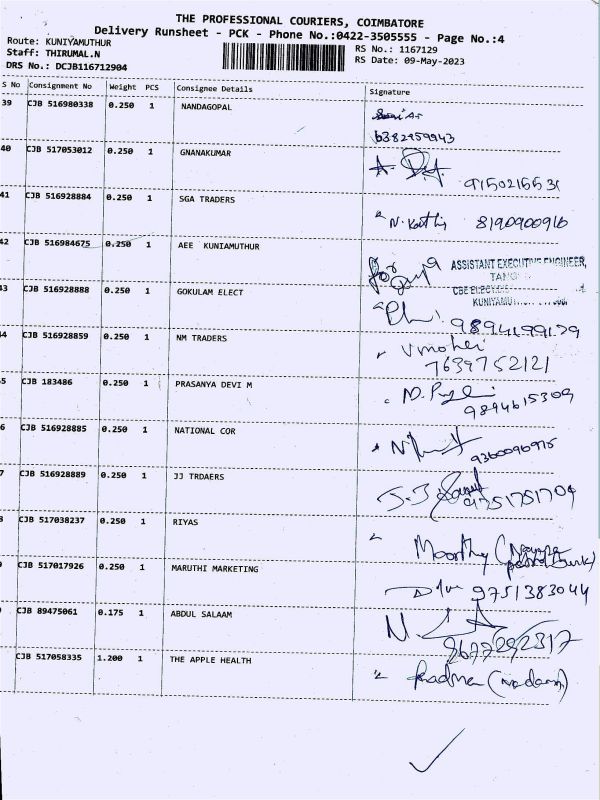 THE PROFESSIONAL COURIERS, COIMBATORE
Delivery Runsheet - PCK - Phone No.:0422-3505555 - Page No.:4
Route: KUNIYAMUTHUR RS No.: 1167129
Staff: THIRUMAL.N RS Date: 09-May-2023
DRS No.: DCJB116712904
S No Consignment No Weight PCS Consignee Details Signature
39 CJB 516980338 0.250 1 NANDAGOPAL
6382459943
40 CJB 517053012 0.250 1 GNANAKUMAR
41 CJB 516928884 0.250 1 SGA TRADERS N. 8190900916
42 CJB 516984675 0.250 1 AEE KUNIAMUTHUR for ASSISTANT EXECUTIVE ENGINEER,
43 CJB 516928888 0.250 1 GOKULAM ELECT
9894199179
44 CJB 516928859 0.250 1 NM TRADERS
7639752121
5 CJB 183486 0.250 1 PRASANYA DEVI M
9894615309
6 CJB 516928885 0.250 1 NATIONAL COR
7 CJB 516928889 0.250 1 JJ TRDAERS J.J 9751751704
8 CJB 517038237 0.250 1 RIYAS Moorthy
CJB 517017926 0.250 1 MARUTHI MARKETING
9751383044
CJB 89475061 0.175 1 ABDUL SALAAM N.
9677292317
CJB 517058335 1.200 1 THE APPLE HEALTH